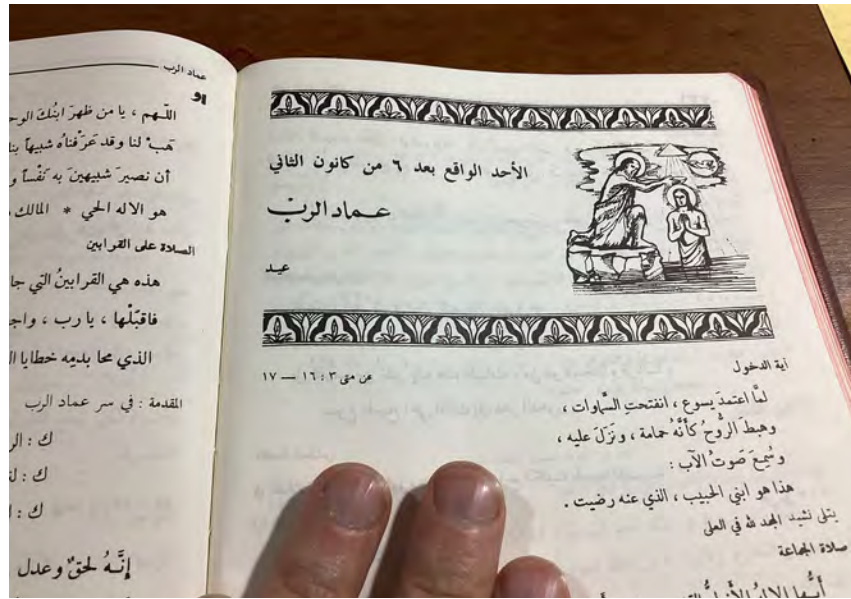 الأحد الواقع بعد ٦ من كانون الثاني
عماد الربّ
عيد
آية الدخول
عن متى ٣ : ١٦ — ١٧
لمَّا اعتمدَ يسوع ، انفتحتِ السَّماوات ،
وهبطَ الرُّوحُ كأنَّهُ حمامة ، ونَزَلَ عليه ،
وسُمِعَ صَوتُ الآب :
هذا هو ابني الحبيب ، الذي عنه رضيت .
يتلى نشيد المجد لله في العلى
صلاة الجماعة
أيُّها الإلهُ الأزليُّ
عماد الرب
او
اللّهم ، يا من ظهرَ ابنُكَ
هَبْ لنا وقد عَرَفْناهُ شبيهاً
أن نصيرَ شبيهينَ به نَفْساً
هو الاله الحي * المالك
الصلاة على القرابين
هذه هي القرابينُ التي
فاقبَلْها ، يا رب ،
الذي محا بدمِه خطايا
المقدمة : في سر عماد الرب
ك :
ك :
ك :
إنَّهُ لحقٌّ وعدل